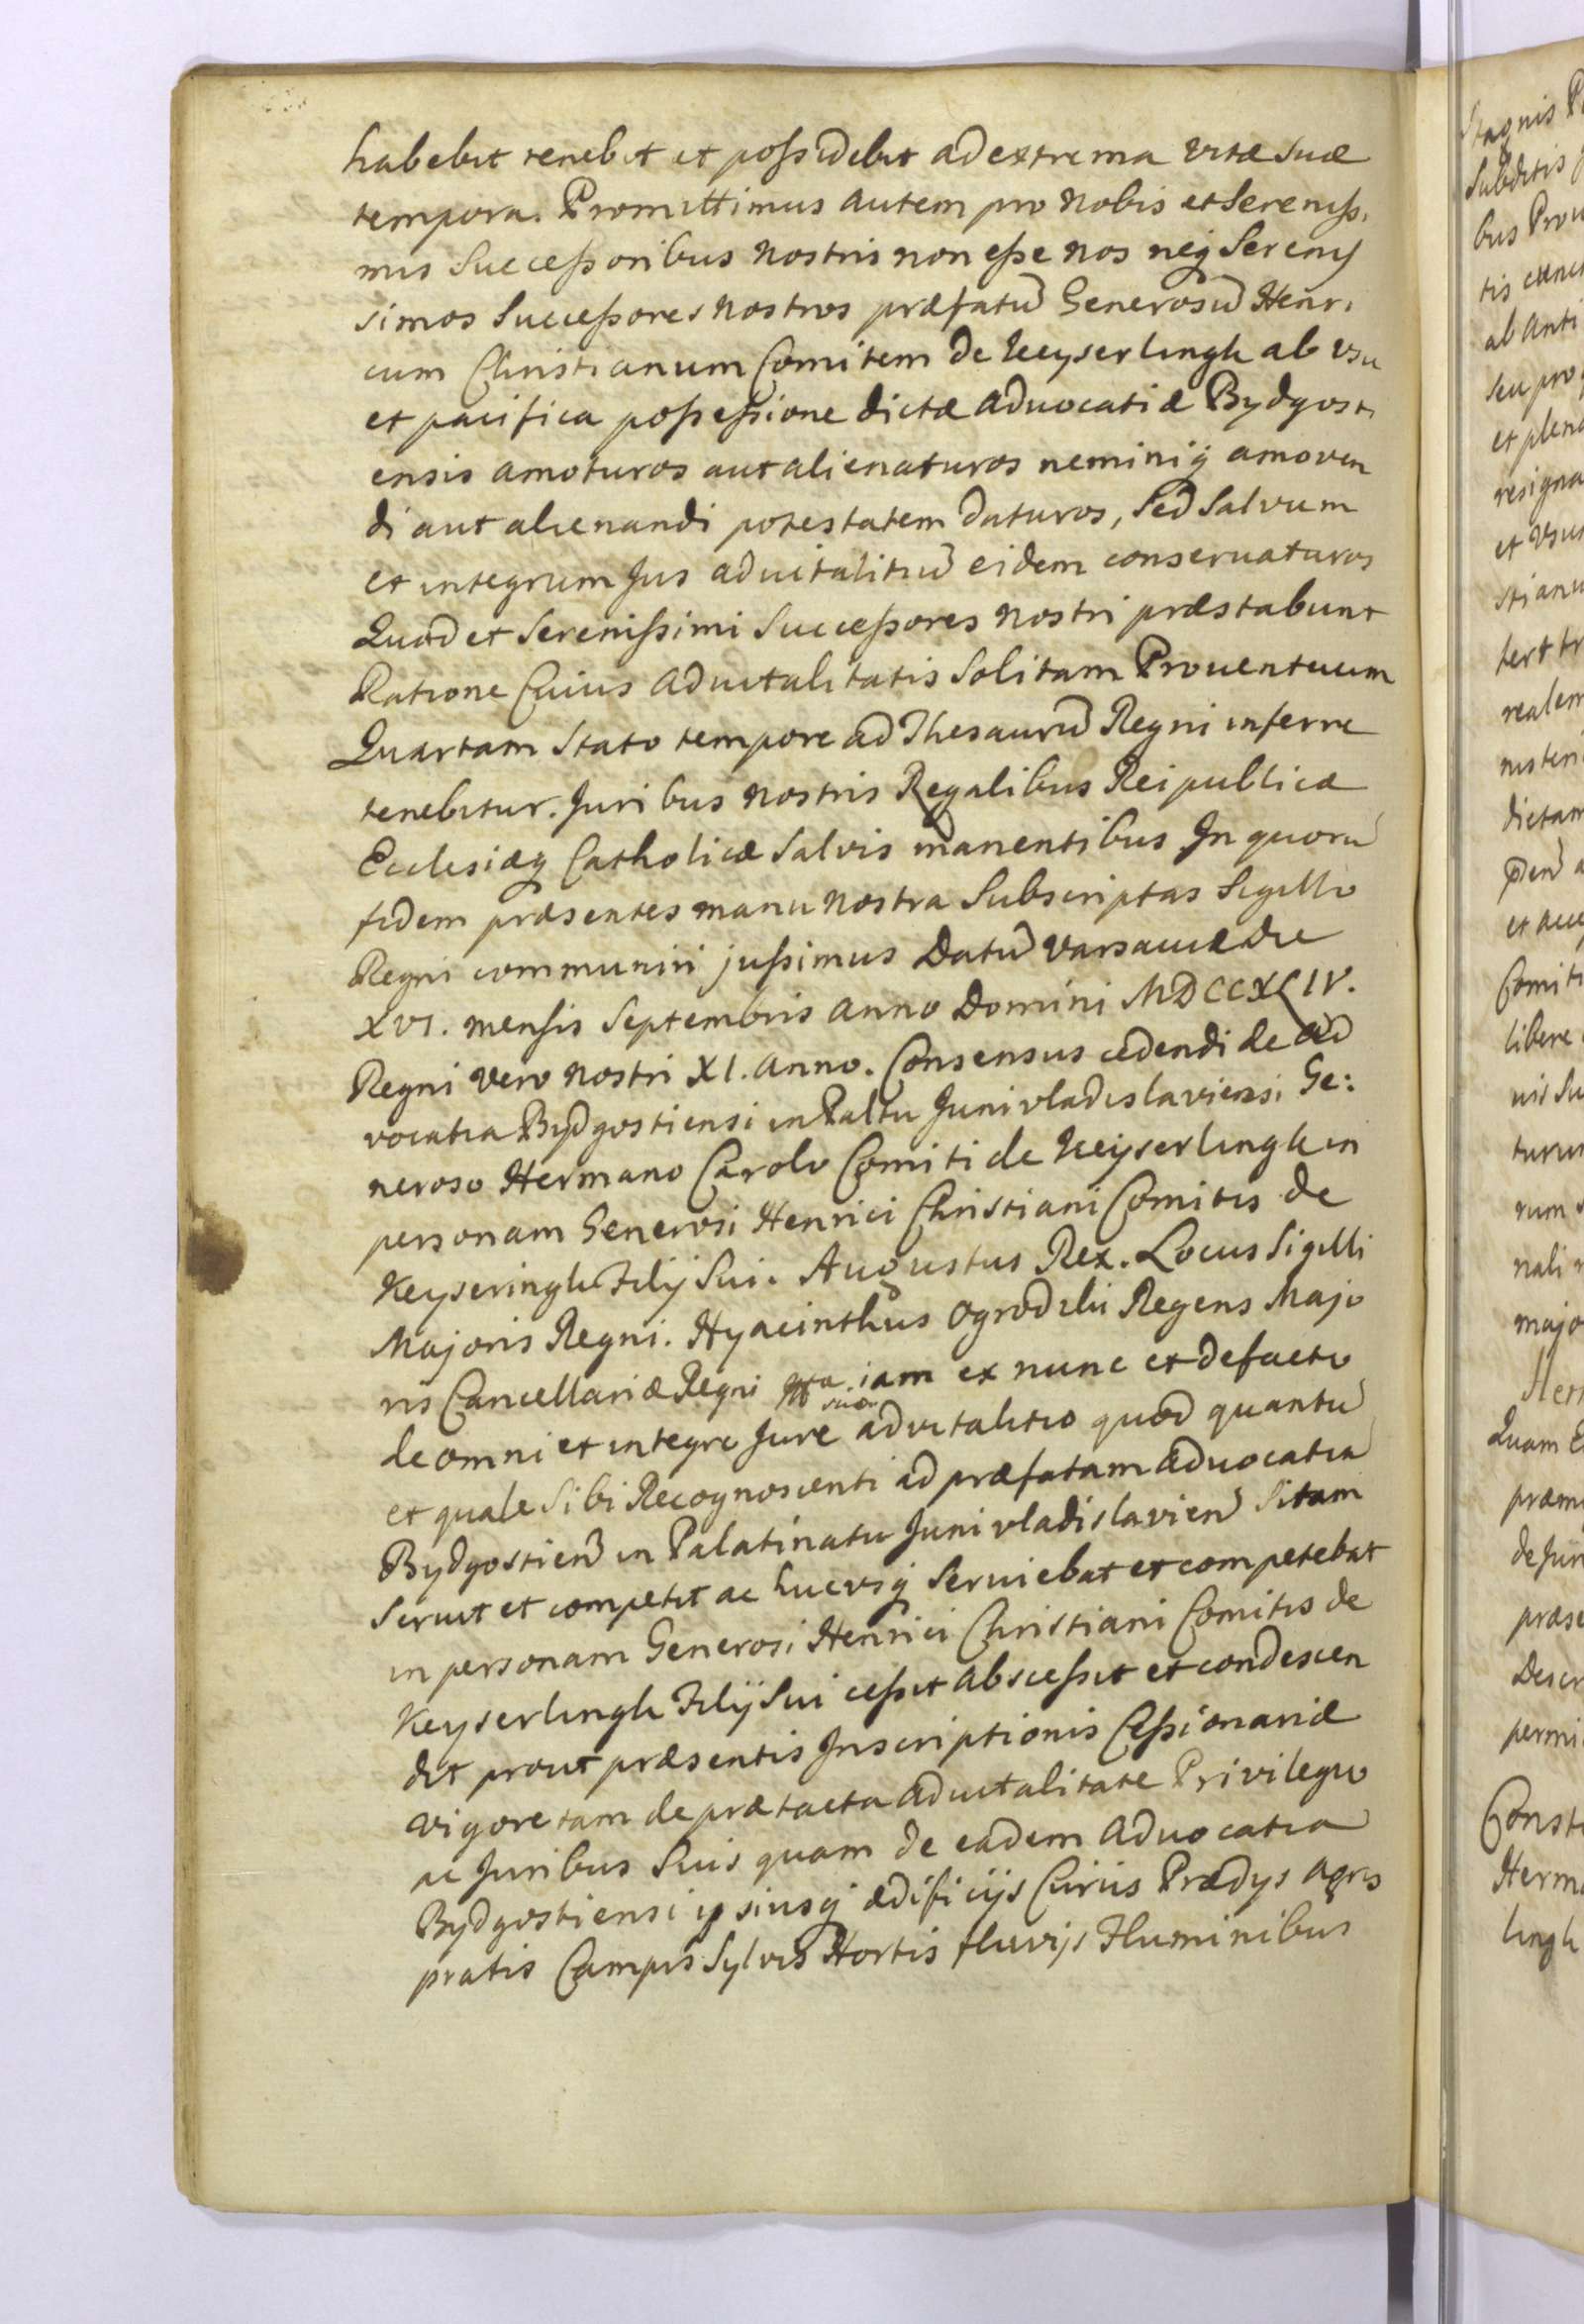 habebit tenebit et possidebit ad extrema vitæ suæ
tempora. Promittimus autem pro Nobis et Sereniss.
mis Successoribus Nostris non esse Nos neq3 Serenis
simos Successores Nostros præfatū Generosū Henri
cum Christianum Comitem de Keyserlingk ab vsu
et pacifica possessione dictæ Aduocatiæ Bydgosti
ensis amoturos aut alienaturos neminiq3 amoven
di aut alienandi potestatem daturos, sed salvum
et integrum Jus aduitalitiū eidem conseruaturos
Quod et Serenissimi Successores Nostri præstabunt
Ratione Cuius Aduitalitatis solitam Prouentuum
Quartam stato tempore ad Thesaurū Regni inferre
tenebitur. Juribus Nostris Regalibus Reipublicæ
Ecclesiæq3 Catholicæ salvis manentibus In quorū
fidem præsentes manu Nostra Subscriptas Sigillo
Regni communiri jussimus Datū Varsauiæ die
XVI. mensis Septembris Anno Domini MDCCXLIV.
Regni vero Nostri XI. Anno. Consensus cedendi de Ad
vocatia Bydgostiensi in Paltu Junivladislaviensi Ge:
neroso Hermano Carolo Comiti de Keyserlingk in
personam Generosi Henrici Christiani Comitis de
Keyseringk Filij Sui. Augustus Rex. Locus Sigilli
Majoris Regni. Hyacinthus Ogrodzki Regens Majo
ris Cancellariæ Regni mp. iam ex nunc et de facto
de omni et integro Jure suo advitalitio quod quantū
et quale sibi Recognoscenti ad præfatam Aduocatiā
Bydgostien̄ in Palatinatu Junivladislavien̄ Sitam
seruit et competit ac hucvsq3 seruiebat et competebat
in personam Generosi Henrici Christiani Comitis de
Keyserlingk Filij Sui cessit abscessit et condescen
dit prout præsentis Inscriptionis Cessionariæ
vigore tam de prætacta Aduitalitate Privilegio
ac Juribus Suis quam de eadem Aduocatia
Bydgostiensi ipsiusq3 ædificijs Curiis Prædijs Agris
pratis Campis Sylvis Hortis fluvijs Fluminibus